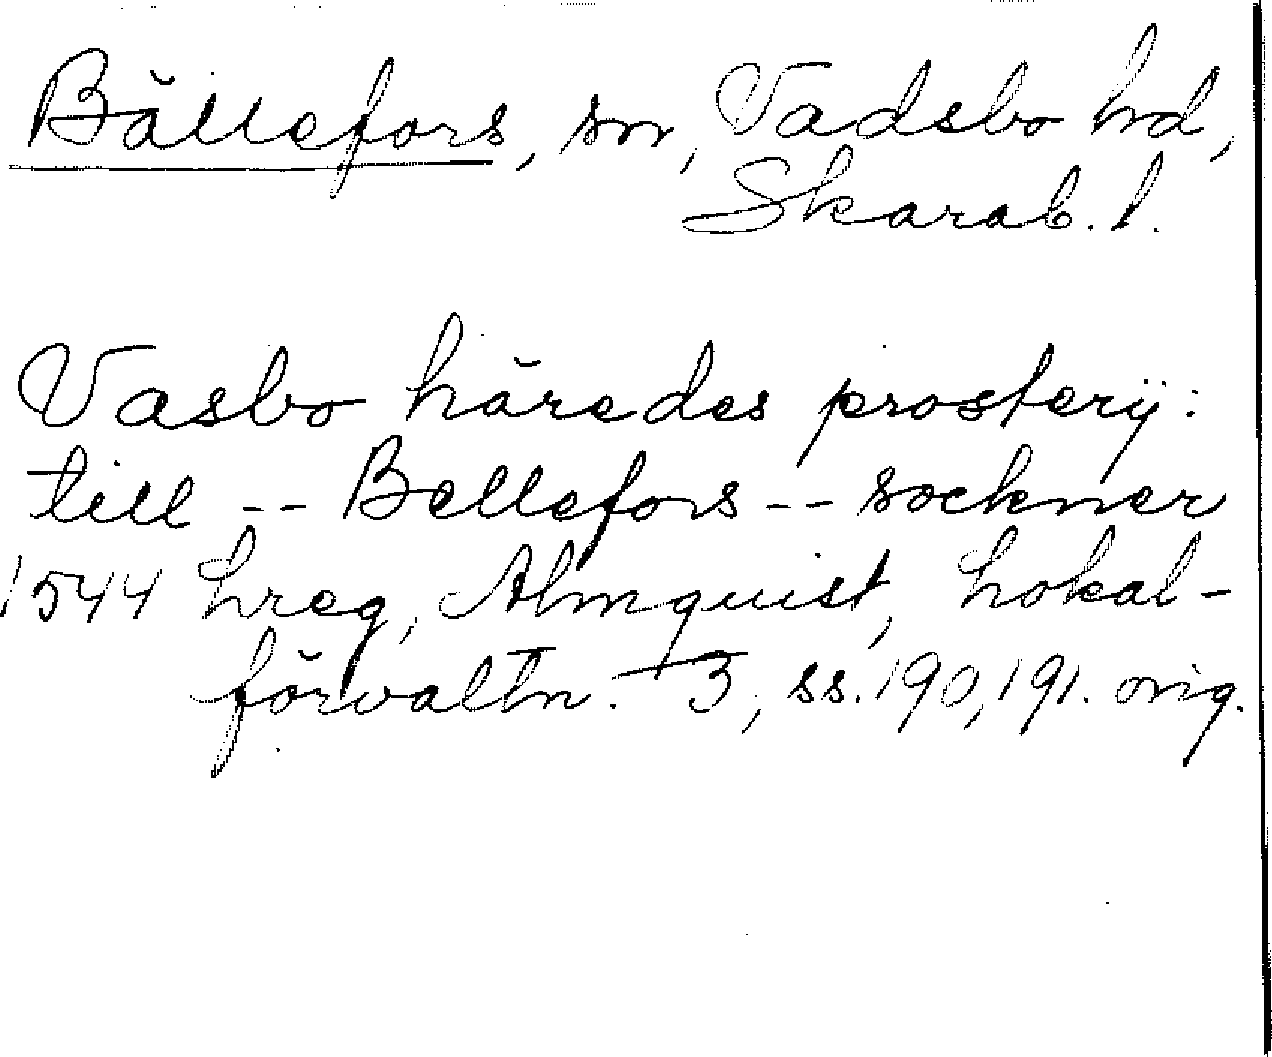 Bällefors, sn, Vadsbo hd,
Skarab. l.
Vasbo häredes prosterij:
till -- Bellefors -- sockner
1544 Lreg, Almquist, Lokal-
förvaltn. 3, ss. 190, 191. orig.